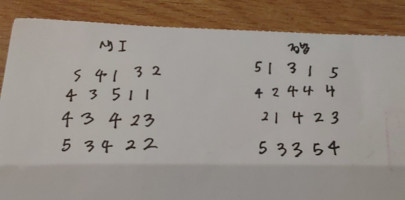 MI
5 4 1 3 2
4 3 5 1 1
4 3 4 2 3
5 3 4 2 2
5 1 3 1 5
4 2 4 4 4
2 1 4 2 3
5 3 3 5 4